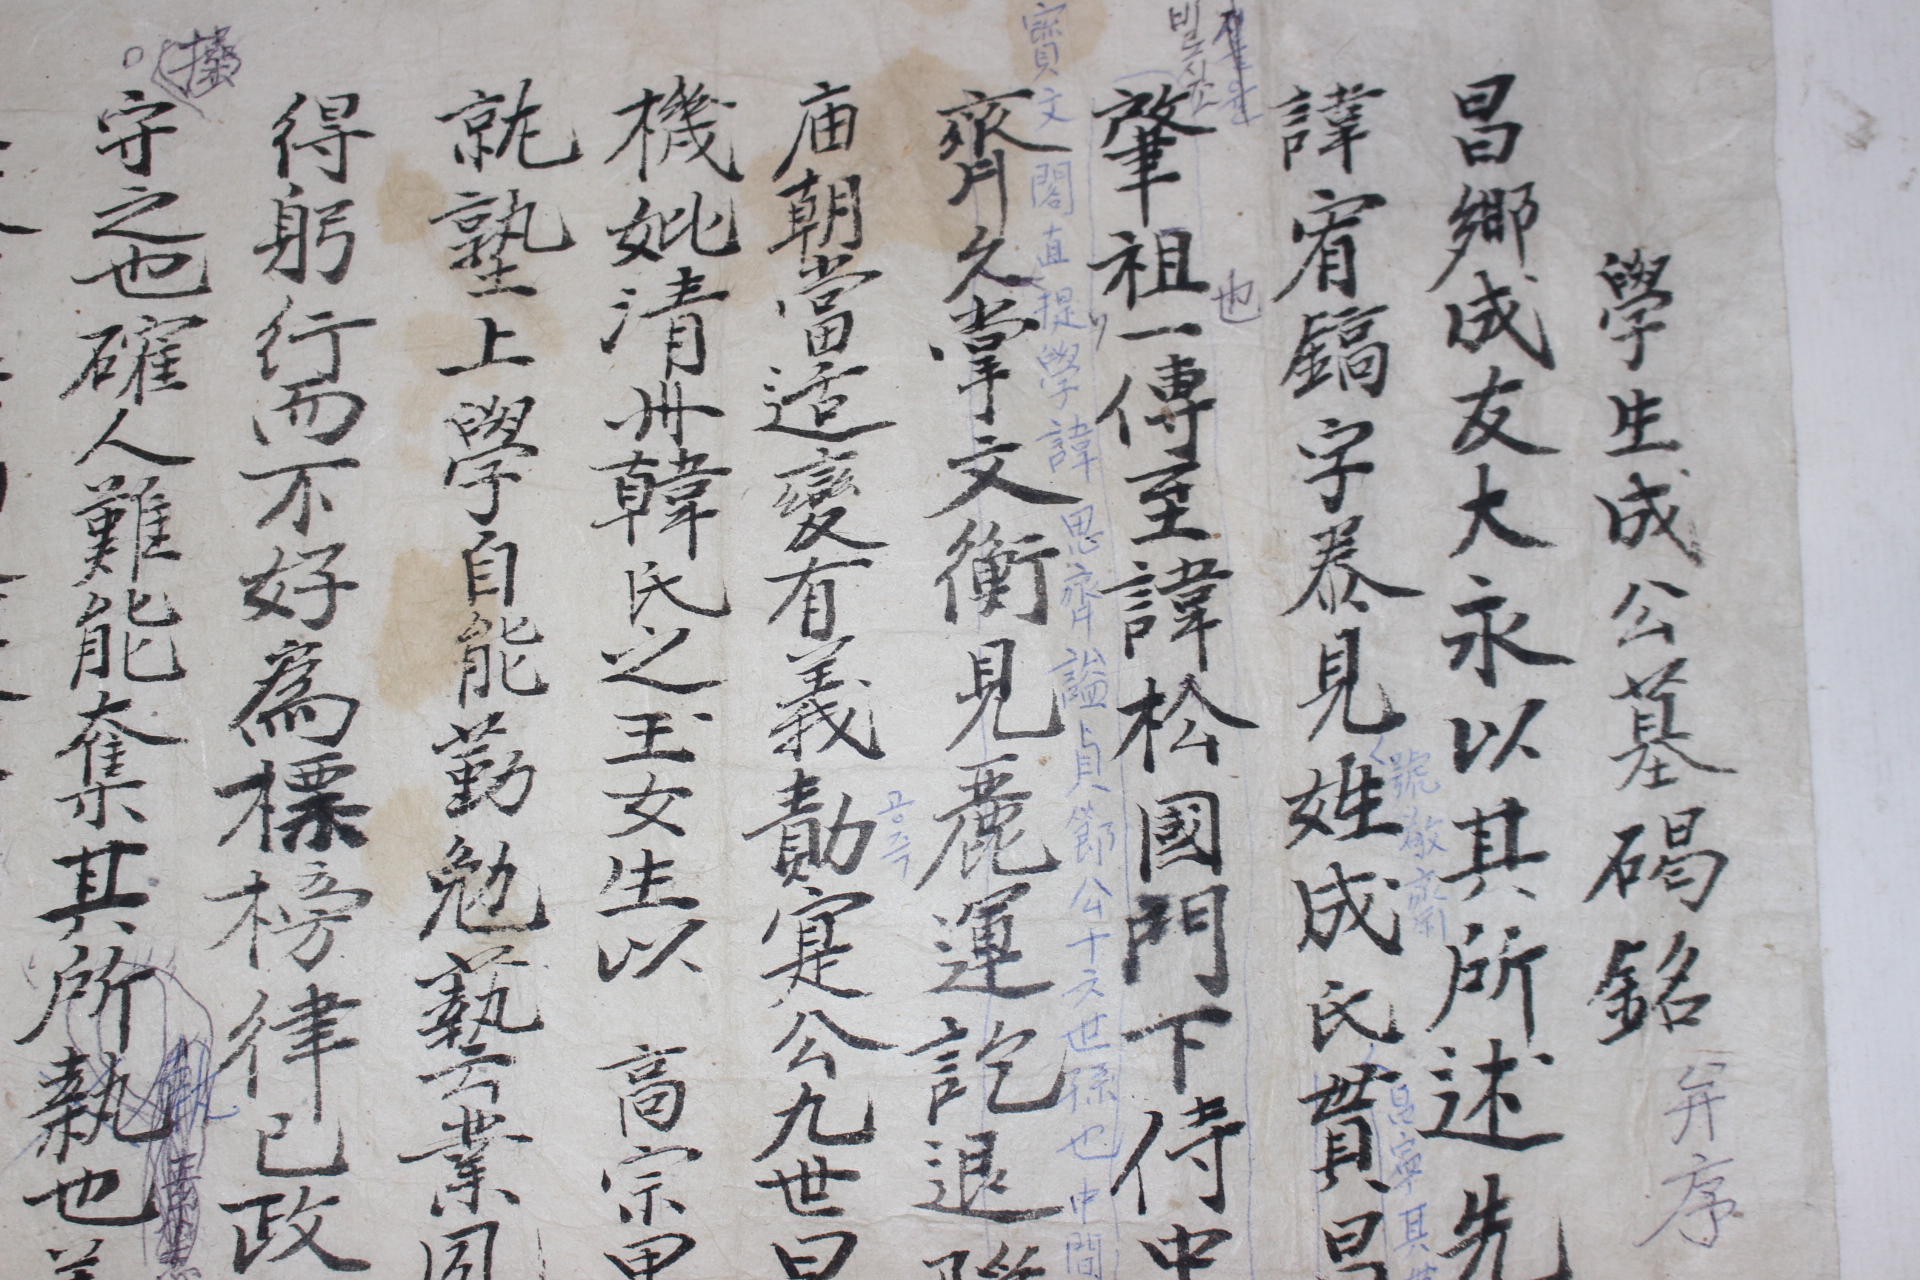 學生成公墓碣銘 弁序
昌鄉成友大永以其所述先
諱宥鎬字泰見姓成氏貫昌
號敬齋
昌寧其
肇祖一傳至諱松國門下侍中
也
寶文閣直提學諱思齊謚貞節公十六世孫也中間
齊久掌文衡見麗運訖退
庙朝當适變有義勣寔公九世曰
공적
機妣清州韓氏之玉女生以 高宗甲
就塾上學自能勤勉藝業同
得躬行而不好為標榜律己政
守之也確人難能奪其所執也